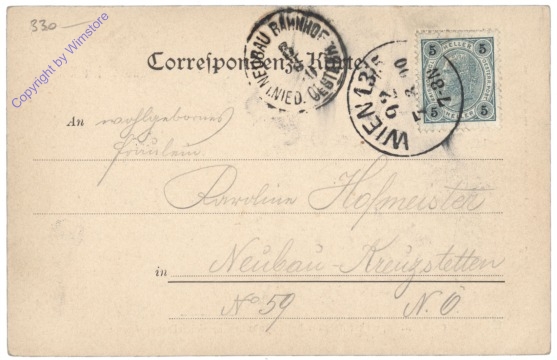 330
Copyright by Wimstore
Correspondenz-Karte
NEUBAU BAHNHOF
NIED. OEST
WIEN 13/7
92
7-8N
5 HELLER 5
5 5
An wohlgebornes
Fräulein
Karoline Hofmeister
in Neubau-Kreuzstetten
No 59 N.Ö.